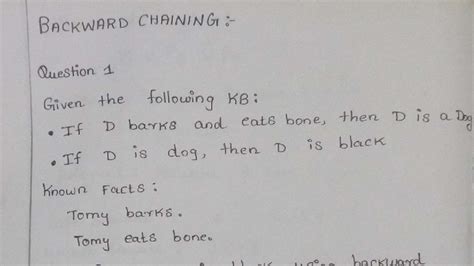 BACKWARD CHAINING :-
Question 1
Given the following KB :
• If D barks and eats bone, then D is a Dog
• If D is dog, then D is black
Known Facts :
Tomy barks.
Tomy eats bone.
backward